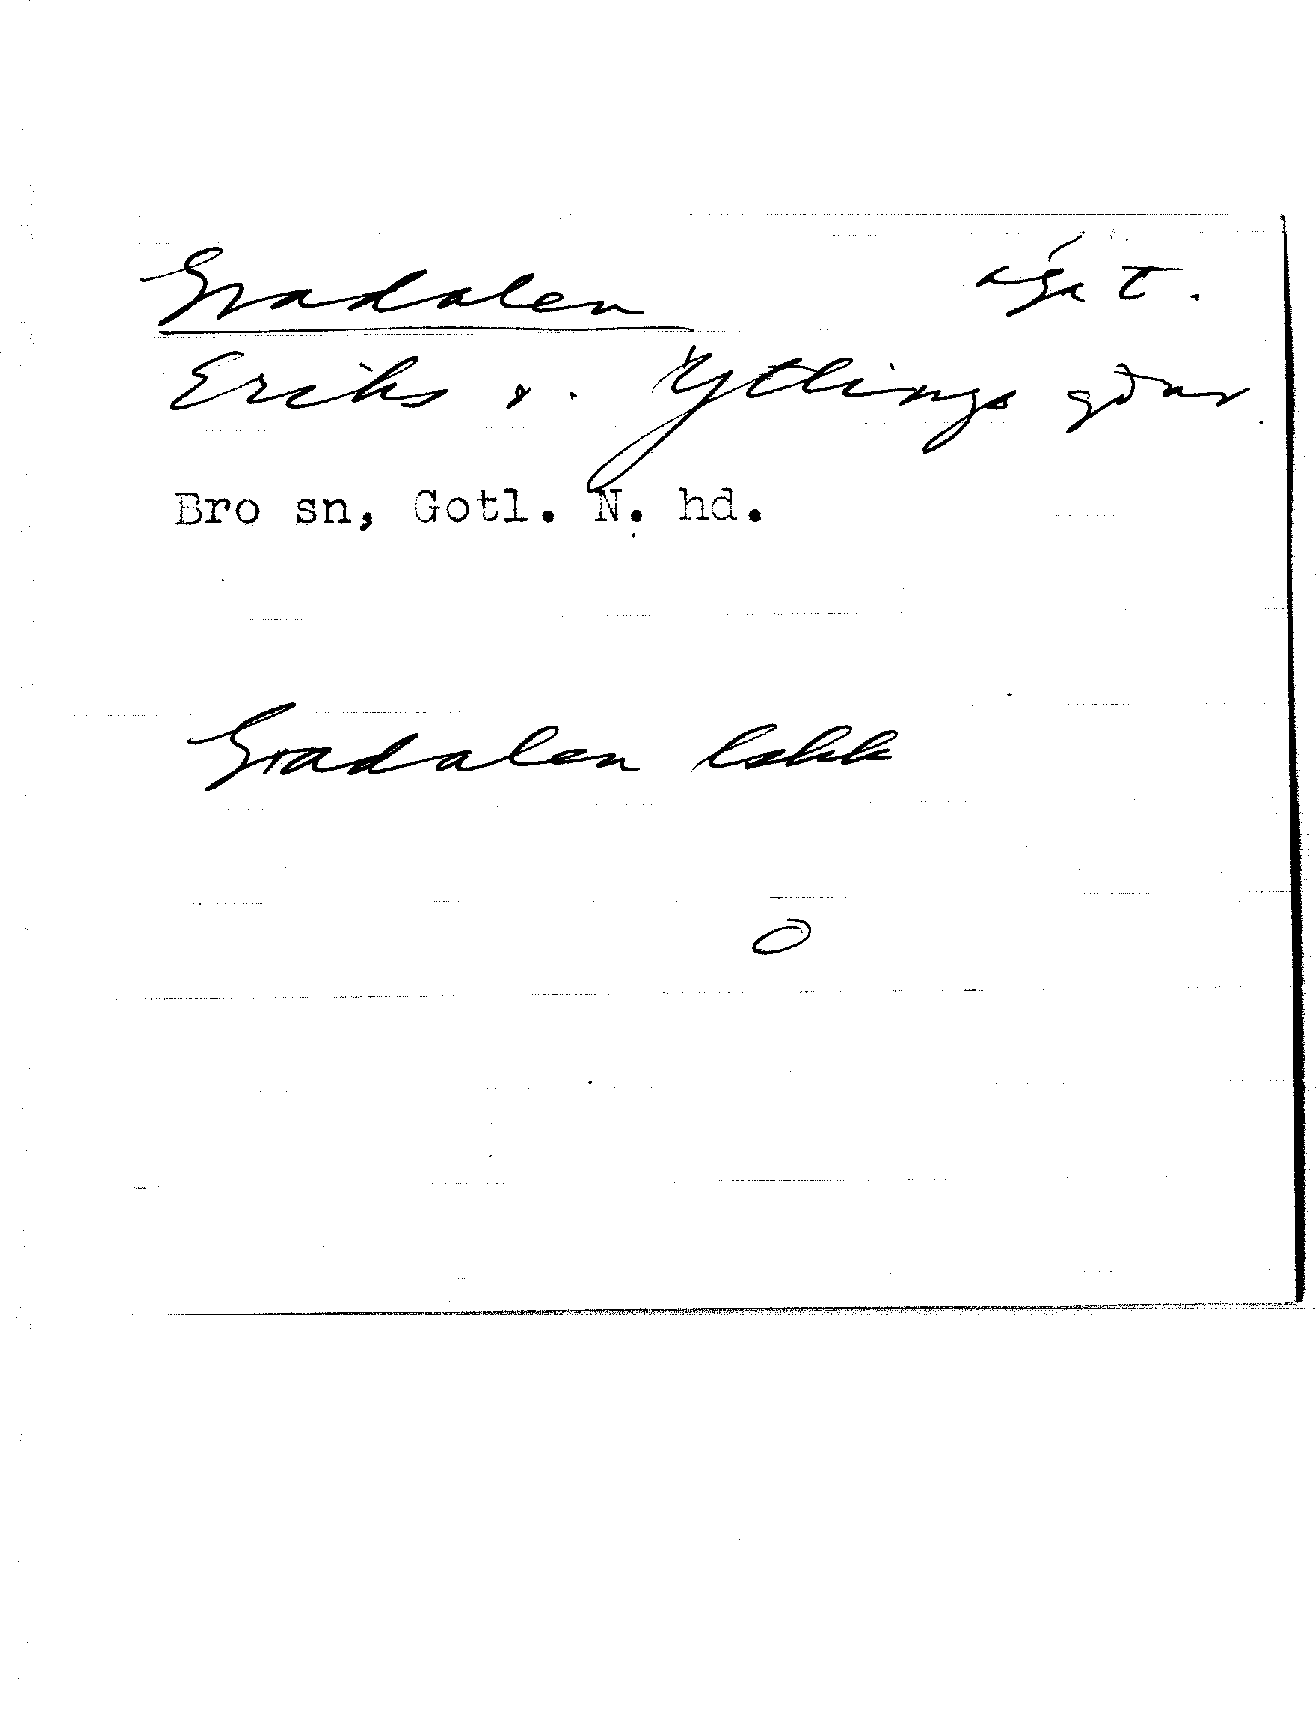 Gradalen
Eriks o. Ytlings gdar
Bro sn, Gotl. N. hd.
Gradalen lokk